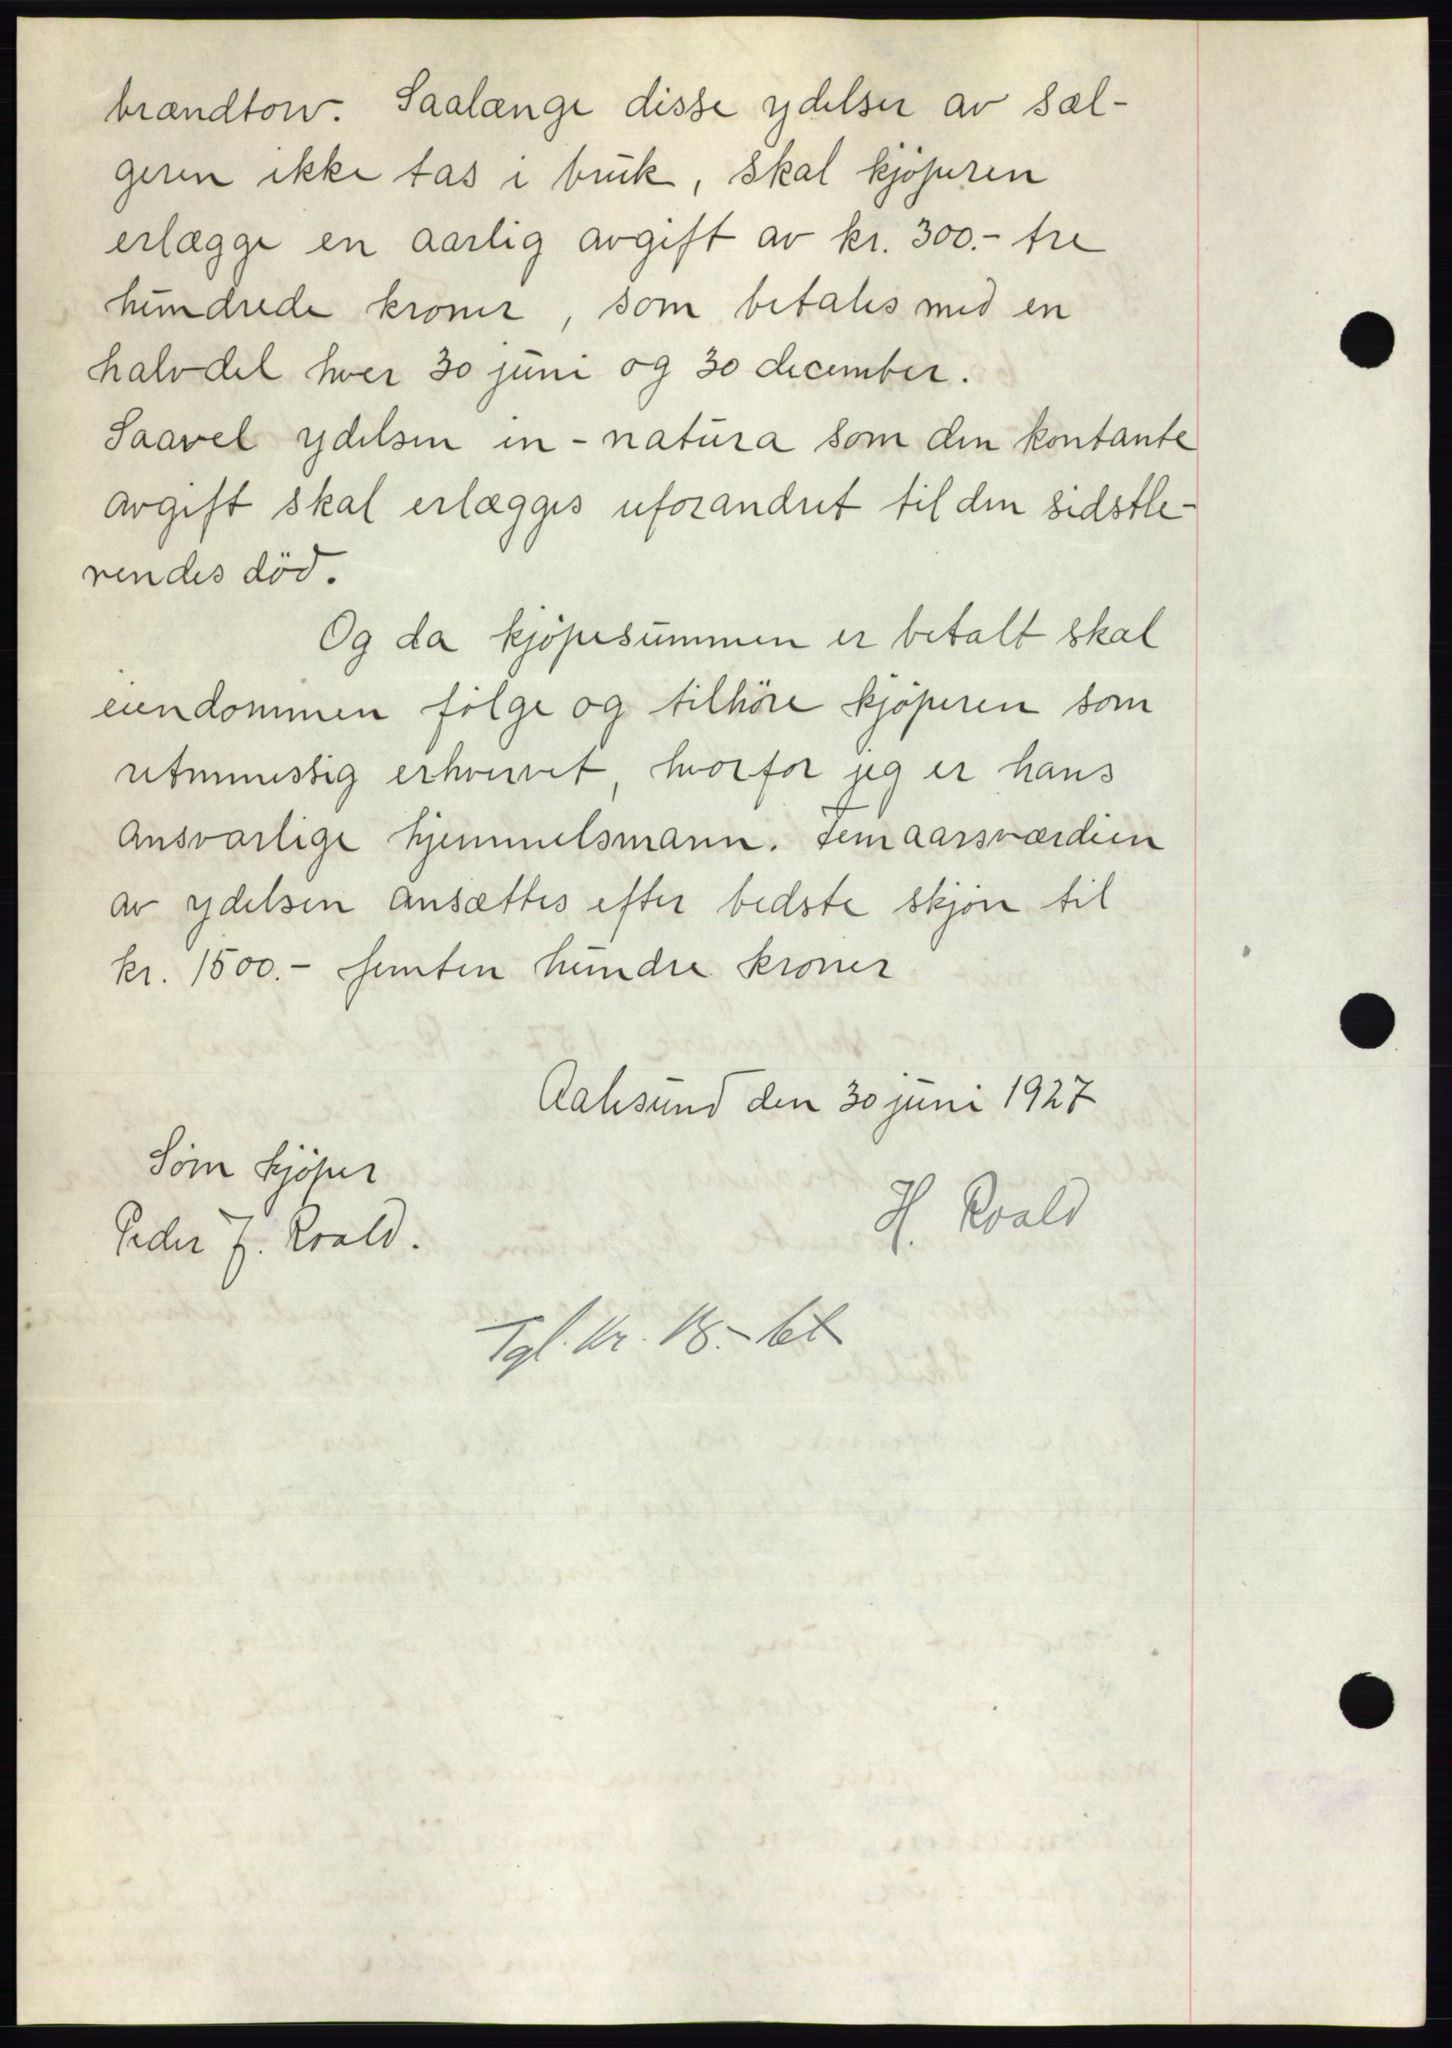 brændtorv. Saalænge disse ydelser av sæl-
geren ikke tas i bruk, skal kjöperen
erlægge en aarlig avgift av kr. 300.- tre
hundrede kroner, som betales med en
halvdel hver 30 juni og 30 december.
Saavel ydelsen in-natura som den kontante
avgift skal erlægges uforandret til den sidstle-
vendes död.
Og da kjöpesummen er betalt skal
eiendommen følge og tilhöre kjöperen som
retmessig erhvervet, hvorfor jeg er hans
ansvarlige hjemmelsmann. Femaarsværdien
av ydelsen ansættes efter bedste skjøn til
kr. 1500.- femten hundre kroner
Aalesund den 30 juni 1927
Som kjöper
H. Roald
Peder J. Roald.
Tgl. kr. 18.- bet